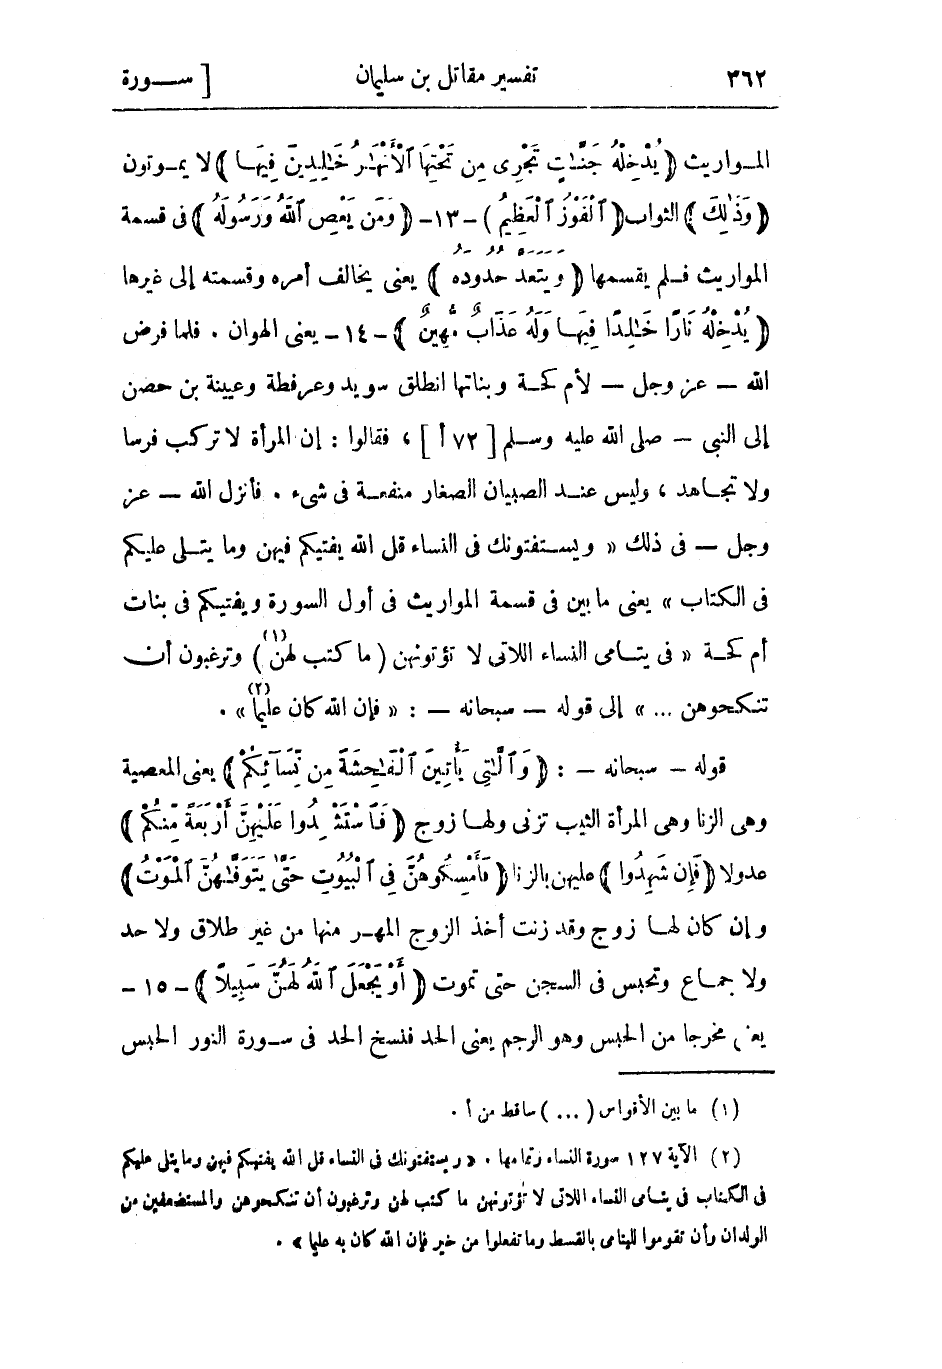 ٣٦٢ تفسير مقاتل بن سليمان [ ســورة
المـواريث ﴿ يُدْخِلْهُ جَنَّٰتٍ تَجْرِى مِن تَحْتِهَا ٱلْأَنْهَٰرُ خَٰلِدِينَ فِيهَا ﴾ لا يمـوتون
﴿ وَذَٰلِكَ ﴾ الثواب ﴿ ٱلْفَوْزُ ٱلْعَظِيمُ ﴾ -١٣- ﴿ وَمَن يَعْصِ ٱللَّهَ وَرَسُولَهُ ﴾ فى قسمة
المواريث فـلم يقسمها ﴿ وَيَتَعَدَّ حُدُودَهُ ﴾ يعنى يخالف أمره وقسمته إلى غيرها
﴿ يُدْخِلْهُ نَارًا خَٰلِدًا فِيهَا وَلَهُ عَذَابٌ مُّهِينٌ ﴾ -١٤- يعنى الهوان . فلما فرض
الله — عز وجل — لأم كحـة وبناتها انطلق سويد وعرفطة وعيينة بن حصن
إلى النبى — صلى الله عليه وسـلم [ ٧٢ أ ] ، فقالوا : إن المرأة لا تركب فرسا
ولا تجـاهد ، وليس عنـد الصبيان الصغار منفعـة فى شىء . فأنزل الله — عز
وجل — فى ذلك « ويسـتفتونك فى النساء قل الله يفتيكم فيهن وما يتـلى عليكم
فى الكتاب » يعنى ما بين فى قسمة المواريث فى أول السورة ويفتيـكم فى بنات
أم كحـة « فى يتـامى النساء اللاتى لا تؤتونهن ( ما كتب لهن )(١) وترغبون أن
تنـكحوهن ... » إلى قوله — سبحانه — : « فإن الله كان عليما »(٢) .
قوله — سبحانه — : ﴿ وَٱلَّٰتِى يَأْتِينَ ٱلْفَٰحِشَةَ مِن نِّسَآئِكُمْ ﴾ يعنى المعصية
وهى الزنا وهى المرأة الثيب تزنى ولهـا زوج ﴿ فَٱسْتَشْهِدُوا عَلَيْهِنَّ أَرْبَعَةً مِّنكُمْ ﴾
عدولا ﴿ فَإِن شَهِدُوا ﴾ عليهن بالزنا ﴿ فَأَمْسِكُوهُنَّ فِى ٱلْبُيُوتِ حَتَّىٰ يَتَوَفَّىٰهُنَّ ٱلْمَوْتُ ﴾
وإن كان لهـا زوج وقد زنت أخذ الزوج المهـر منها من غير طلاق ولا حد
ولا جمـاع وتحبس فى السجن حتى تموت ﴿ أَوْ يَجْعَلَ ٱللَّهُ لَهُنَّ سَبِيلًا ﴾ - ١٥ -
يعنى مخرجا من الحبس وهو الرجم يعنى الحد فنسخ الحد فى سـورة النور الحبس
(١) ما بين الأقواس ( ... ) ساقط من أ .
(٢) الآية ١٢٧ سورة النساء وتمامها . « ويستفتونك فى النساء قل الله يفتيكم فيهن وما يتلى عليكم
فى الكتاب فى يتامى النساء اللاتى لا تؤتونهن ما كتب لهن وترغبون أن تنكحوهن والمستضعفين من
الولدان وأن تقوموا لليتامى بالقسط وما تفعلوا من خير فإن الله كان به عليما » .